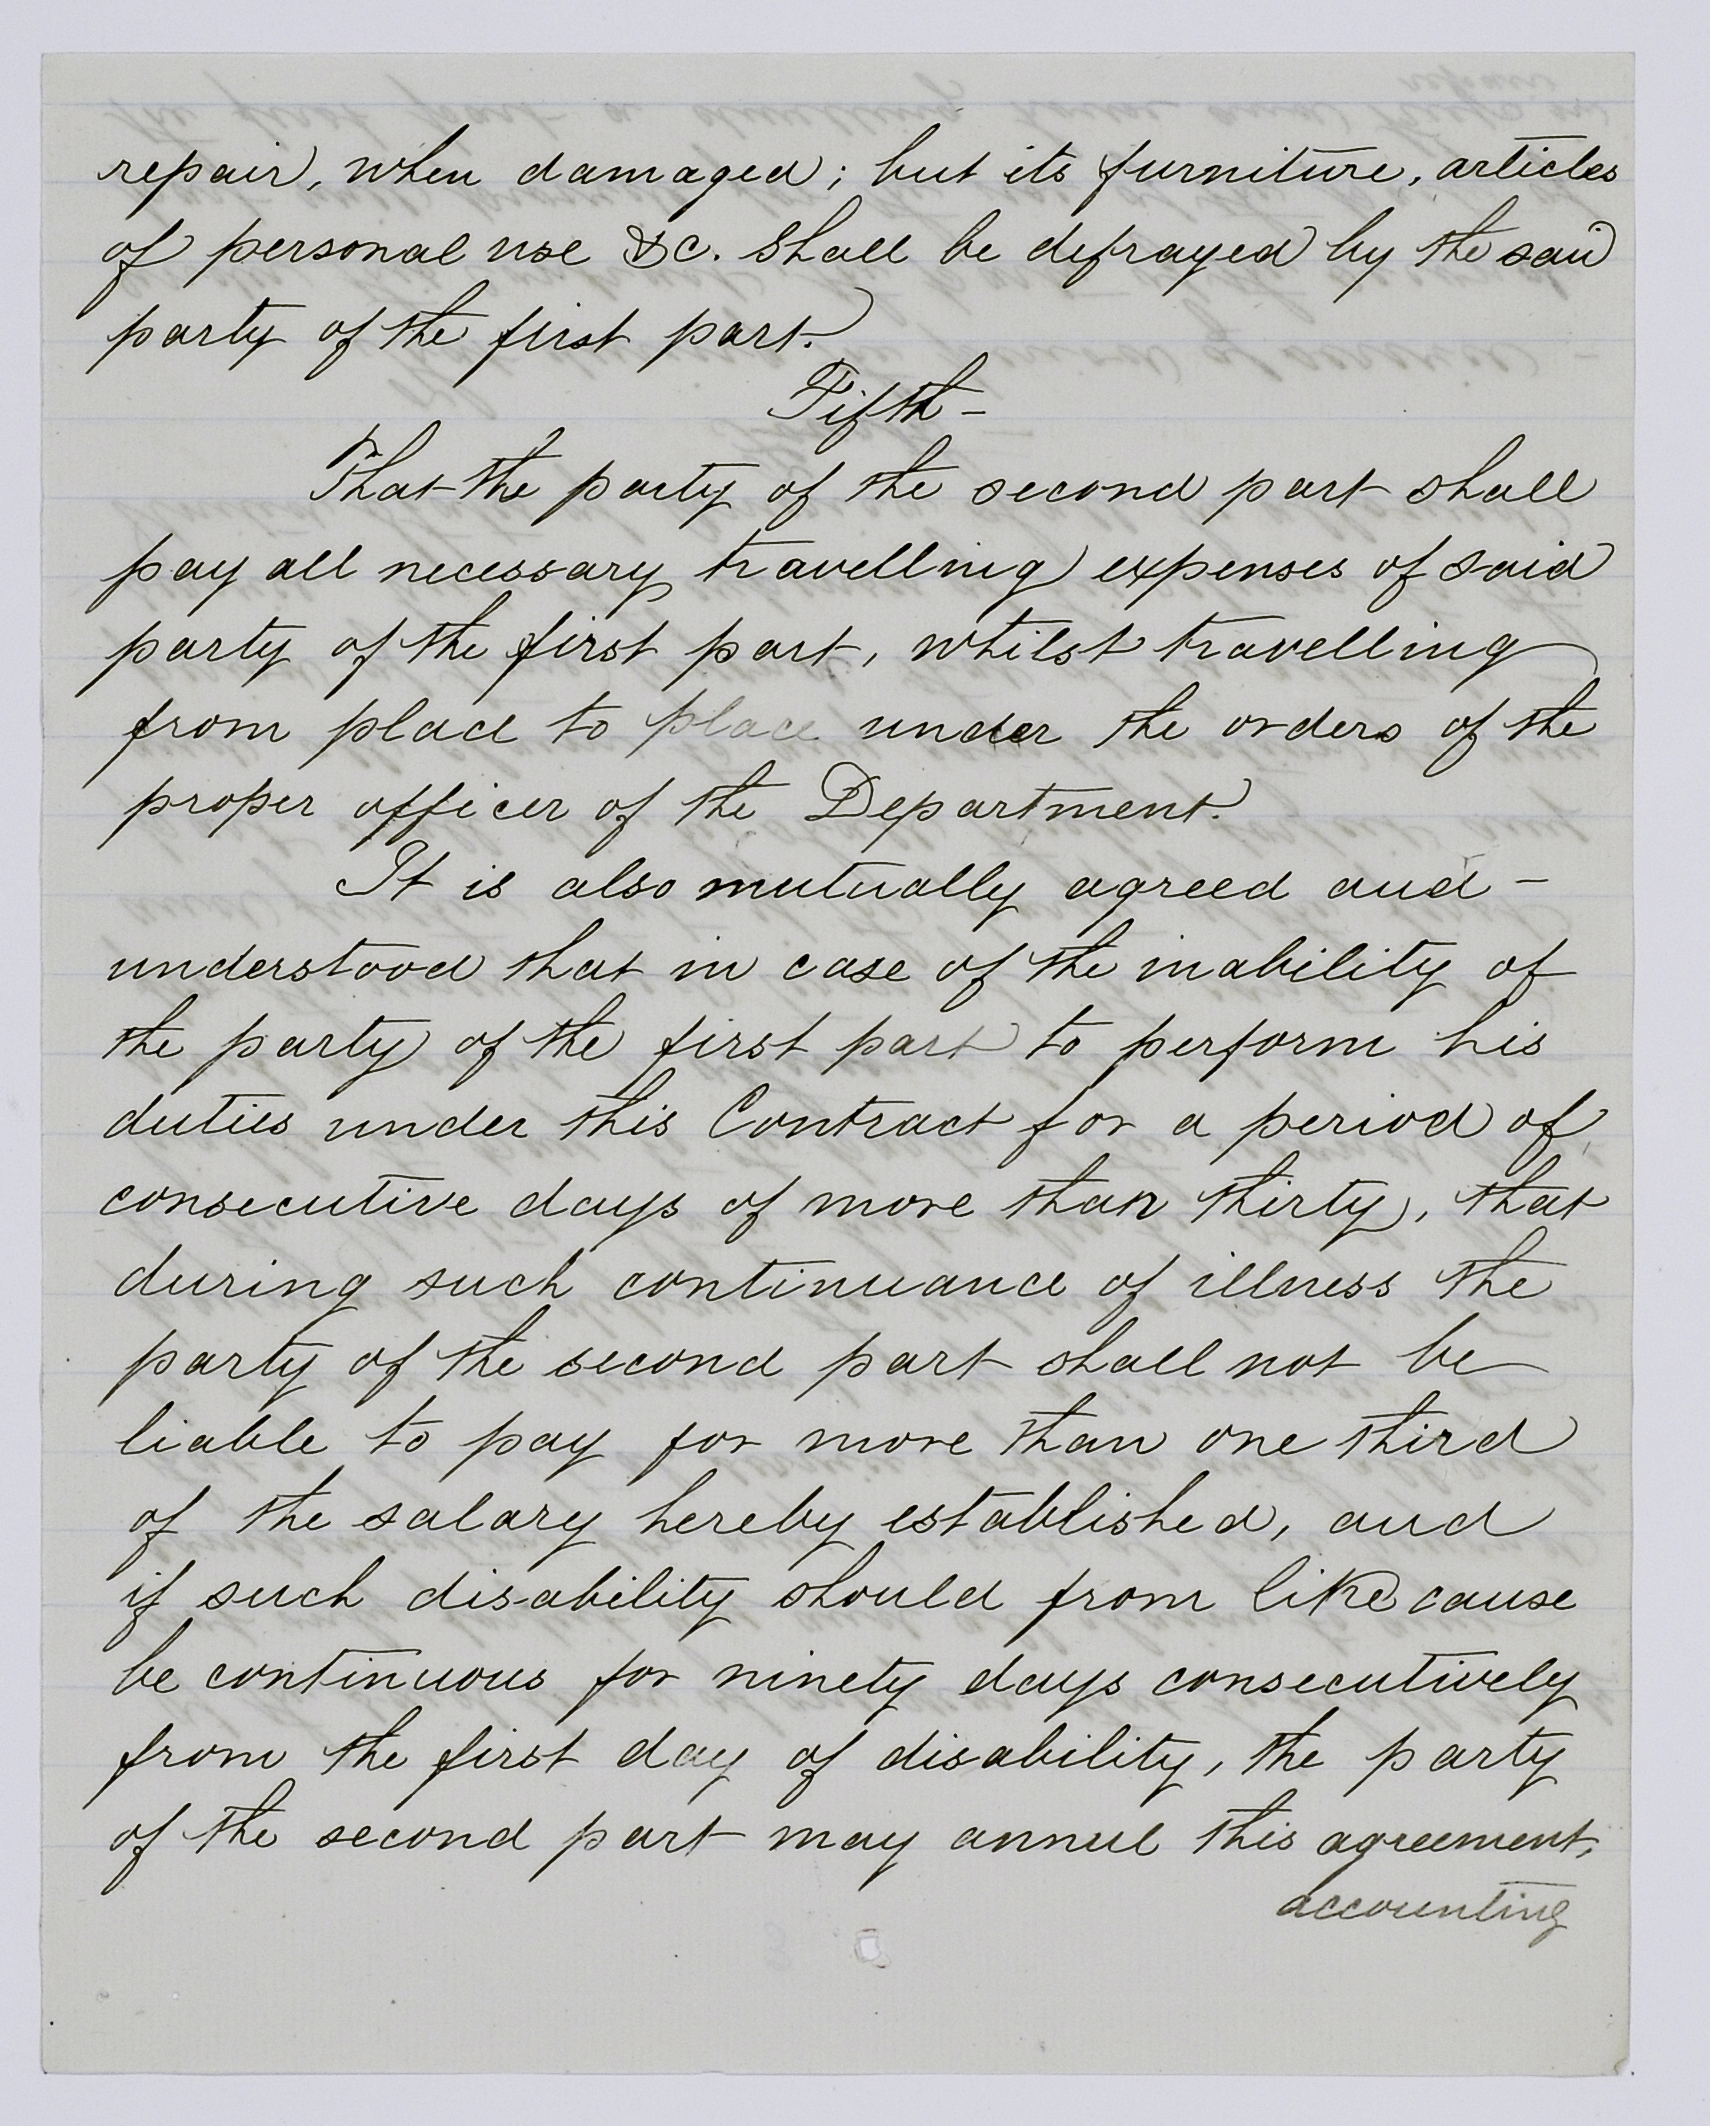 repair, when damaged; but its furniture, articles
of personal use &c. shall be defrayed by the said
party of the first part.
Fifth -
That the party of the second part shall
pay all necessary travelling expenses of said
party of the first part, whilst travelling
from place to place under the orders of the
proper officer of the Department.
It is also mutually agreed and -
understood that in case of the inability of
the party of the first part to perform his
duties under this Contract for a period of
consecutive days of more than thirty, that
during such continuance of illness the
party of the second part shall not be
liable to pay for more than one third
of the salary hereby established, and
if such disability should from like cause
be continuous for ninety days consecutively
from the first day of disability, the party
of the second part may annul this agreement,
accounting